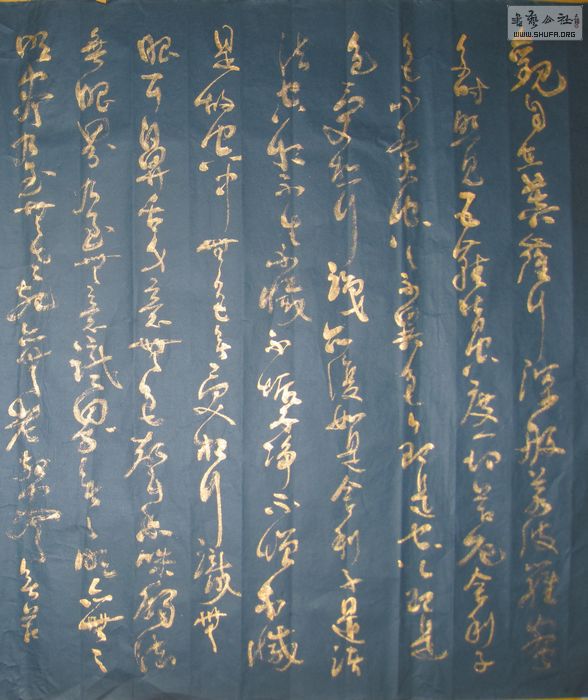 觀自在菩薩行深般若波羅蜜
多時照見五蘊皆空度一切苦厄舍利子
色不異空空不異色色即是空空即是
色受想行識亦復如是舍利子是諸
法空相不生不滅不垢不淨不增不減
是故空中無色無受想行識無
眼耳鼻舌身意無色聲香味觸法
無眼界乃至無意識界無無明亦無無
明盡乃至無老死亦無老死盡無苦
書藝公社
WWW.SHUFA.ORG